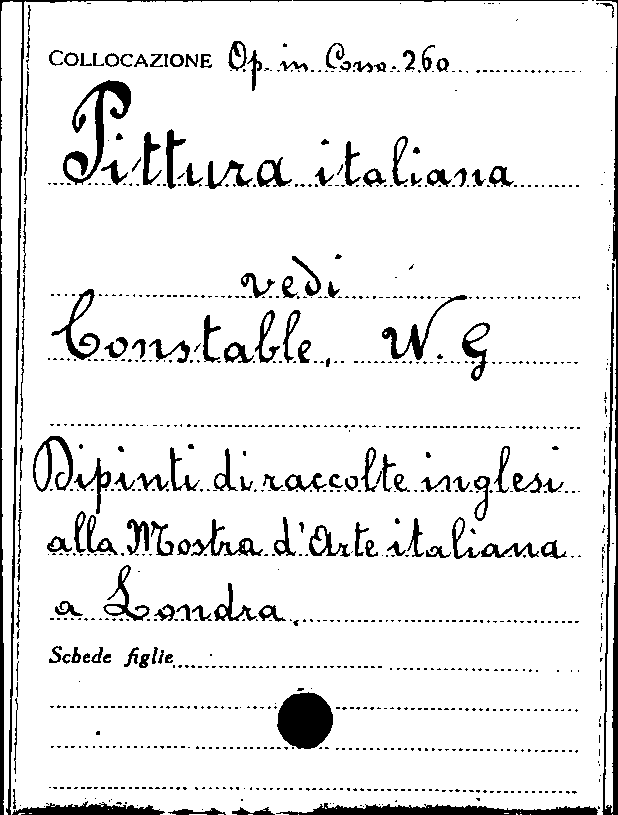 COLLOCAZIONE Op. in Corso. 260
Pittura italiana
vedi
Constable, W. G
Dipinti di raccolte inglesi
alla Mostra d'Arte italiana
a Londra.
Schede figlie